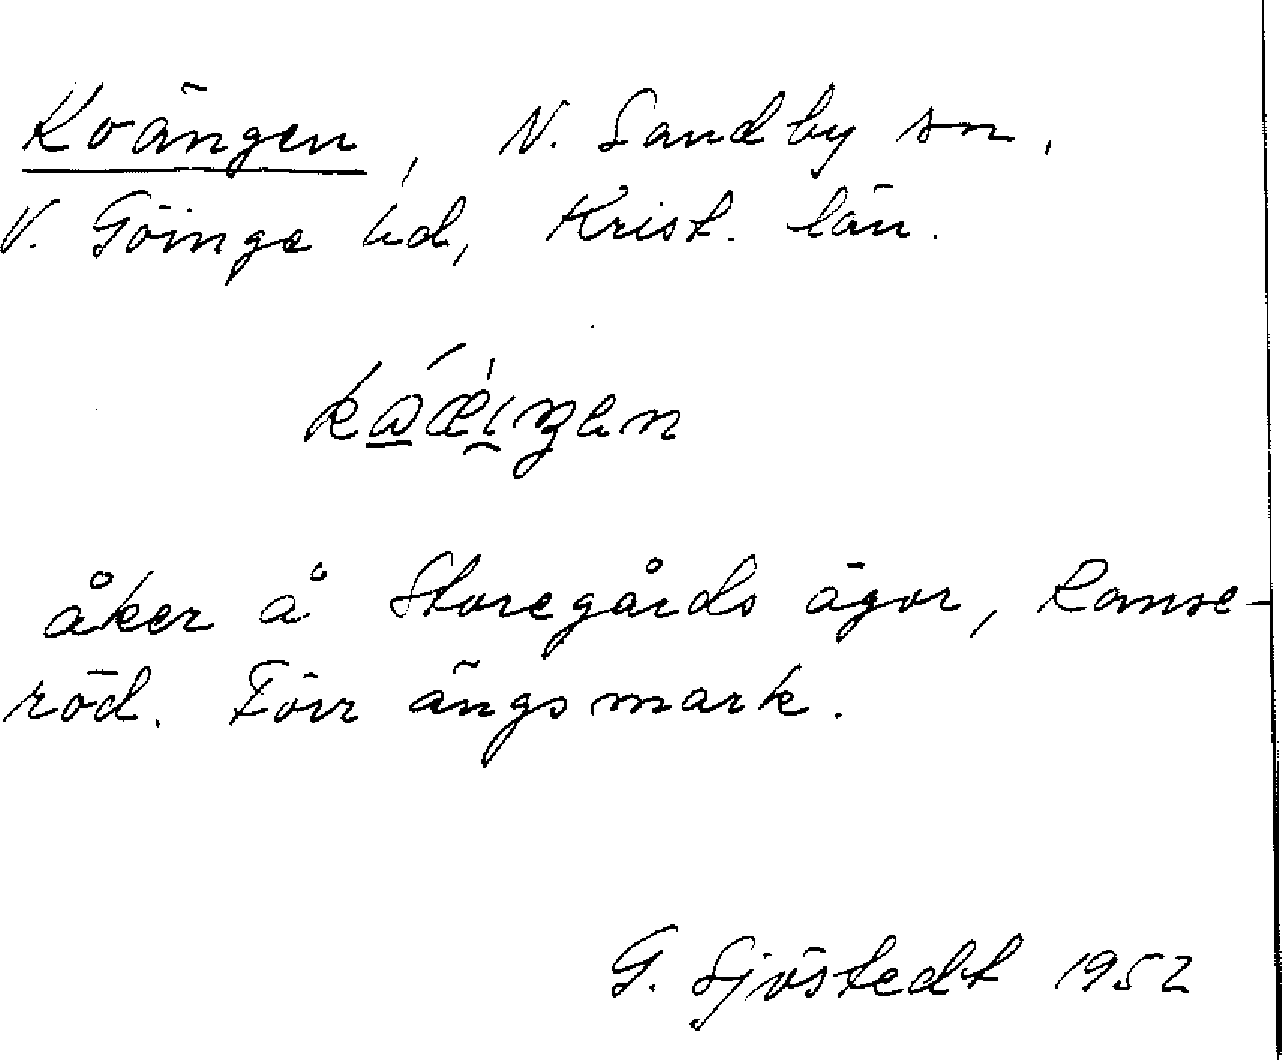 Koängen, N. Sandby sn,
V. Göinge hd, Krist. län.
åker å Storegårds ägor, Ranse-
röd. Förr ängsmark.
G. Sjöstedt 1952